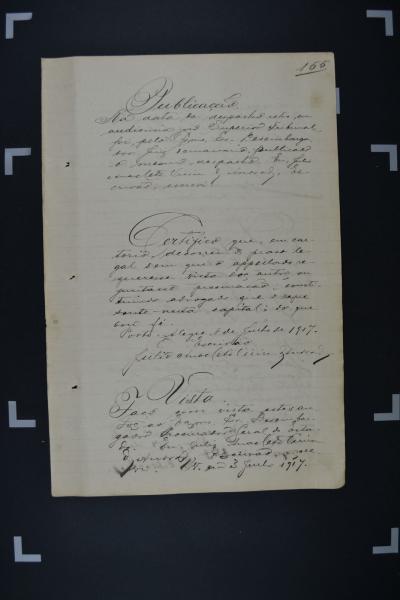 166
Publicação
Na data do despacho retro, em
audiencia do Superior Tribunal
foi, pelo Exmo. Sr. Desembarga
dor Juiz semanario, publicado
o mesmo despacho. Eu, Julio
Anacleto
crivão, escrevi
Certifico que, em car
torio, decorreu o praso le
gal sem que o appellado re
queresse vista dos autos, ou
juntasse procuração, consti
tuindo advogado que o repre
sente nesta capital; do que
dou fé.
Porto Alegre, 2 de Junho de 1917.
O escrivão
Julio Anacleto
Vista
Faço com vista estes au
tos ao Exmo. Sr. Desembar
gador Procurador Geral do esta
do. Eu, Julio Anacleto
escrivão, escre
vi. P. A. em 2 Junho 1917.